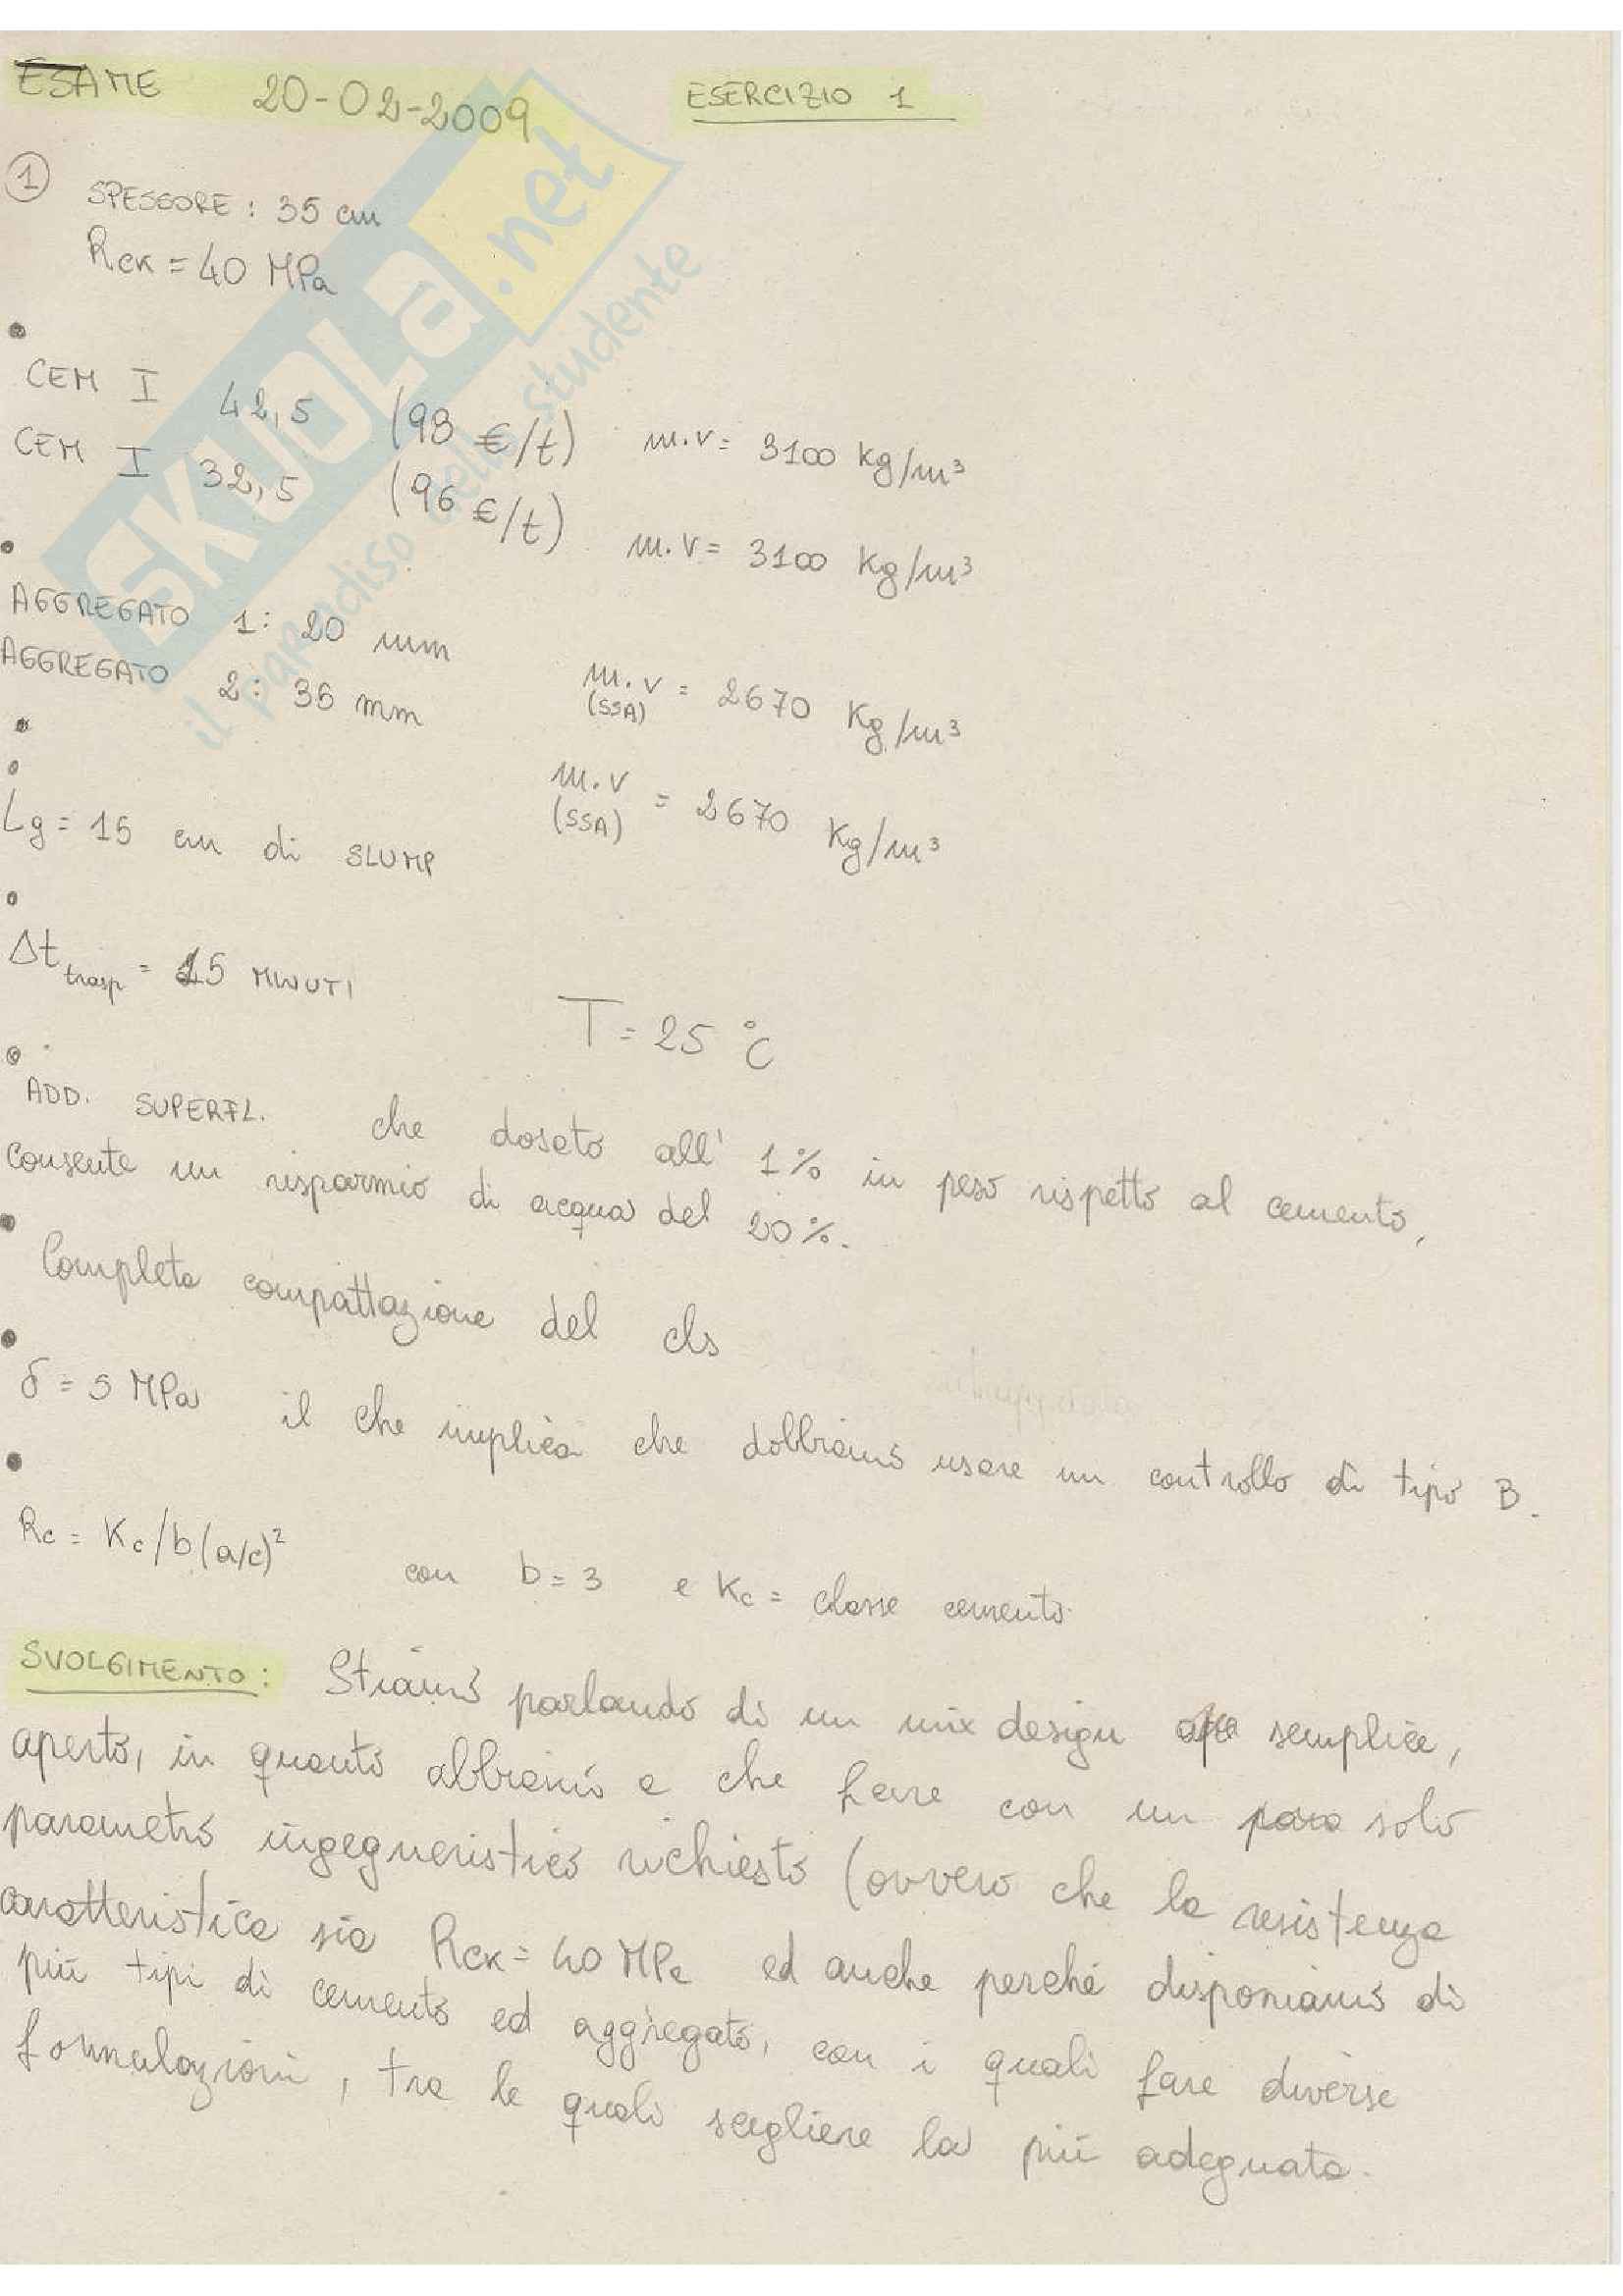 ESAME 20-02-2009 ESERCIZIO 1
1 SPESSORE: 35 cm
Rck = 40 MPa
CEM I 42,5 (98 €/t) m.v = 3100 kg/m³
CEM I 32,5 (96 €/t) m.v = 3100 kg/m³
AGGREGATO 1: 20 mm m.v (SSA) = 2670 Kg/m³
AGGREGATO 2: 35 mm m.v (SSA) = 2670 Kg/m³
Lg = 15 cm di SLUMP
Δt trasp = 15 MINUTI T = 25 °C
ADD. SUPERFL. che dosato all' 1% in peso rispetto al cemento,
consente un risparmio di acqua del 20%.
Completa compattazione del cls
δ = 5 MPa il che implica che dobbiamo usare un controllo di tipo B.
Rc = Kc/b(a/c)² con b = 3 e Kc = classe cemento
SVOLGIMENTO: Stiamo parlando di un mix design semplice,
aperto, in quanto abbiamo a che fare con un solo
parametro ingegneristico richiesto (ovvero che la resistenza
caratteristica sia Rck = 40 MPa ed anche perché disponiamo di
più tipi di cemento ed aggregato, con i quali fare diverse
formulazioni, tra le quali scegliere la più adeguata.
SKUOLa.net
il paradiso dello studente